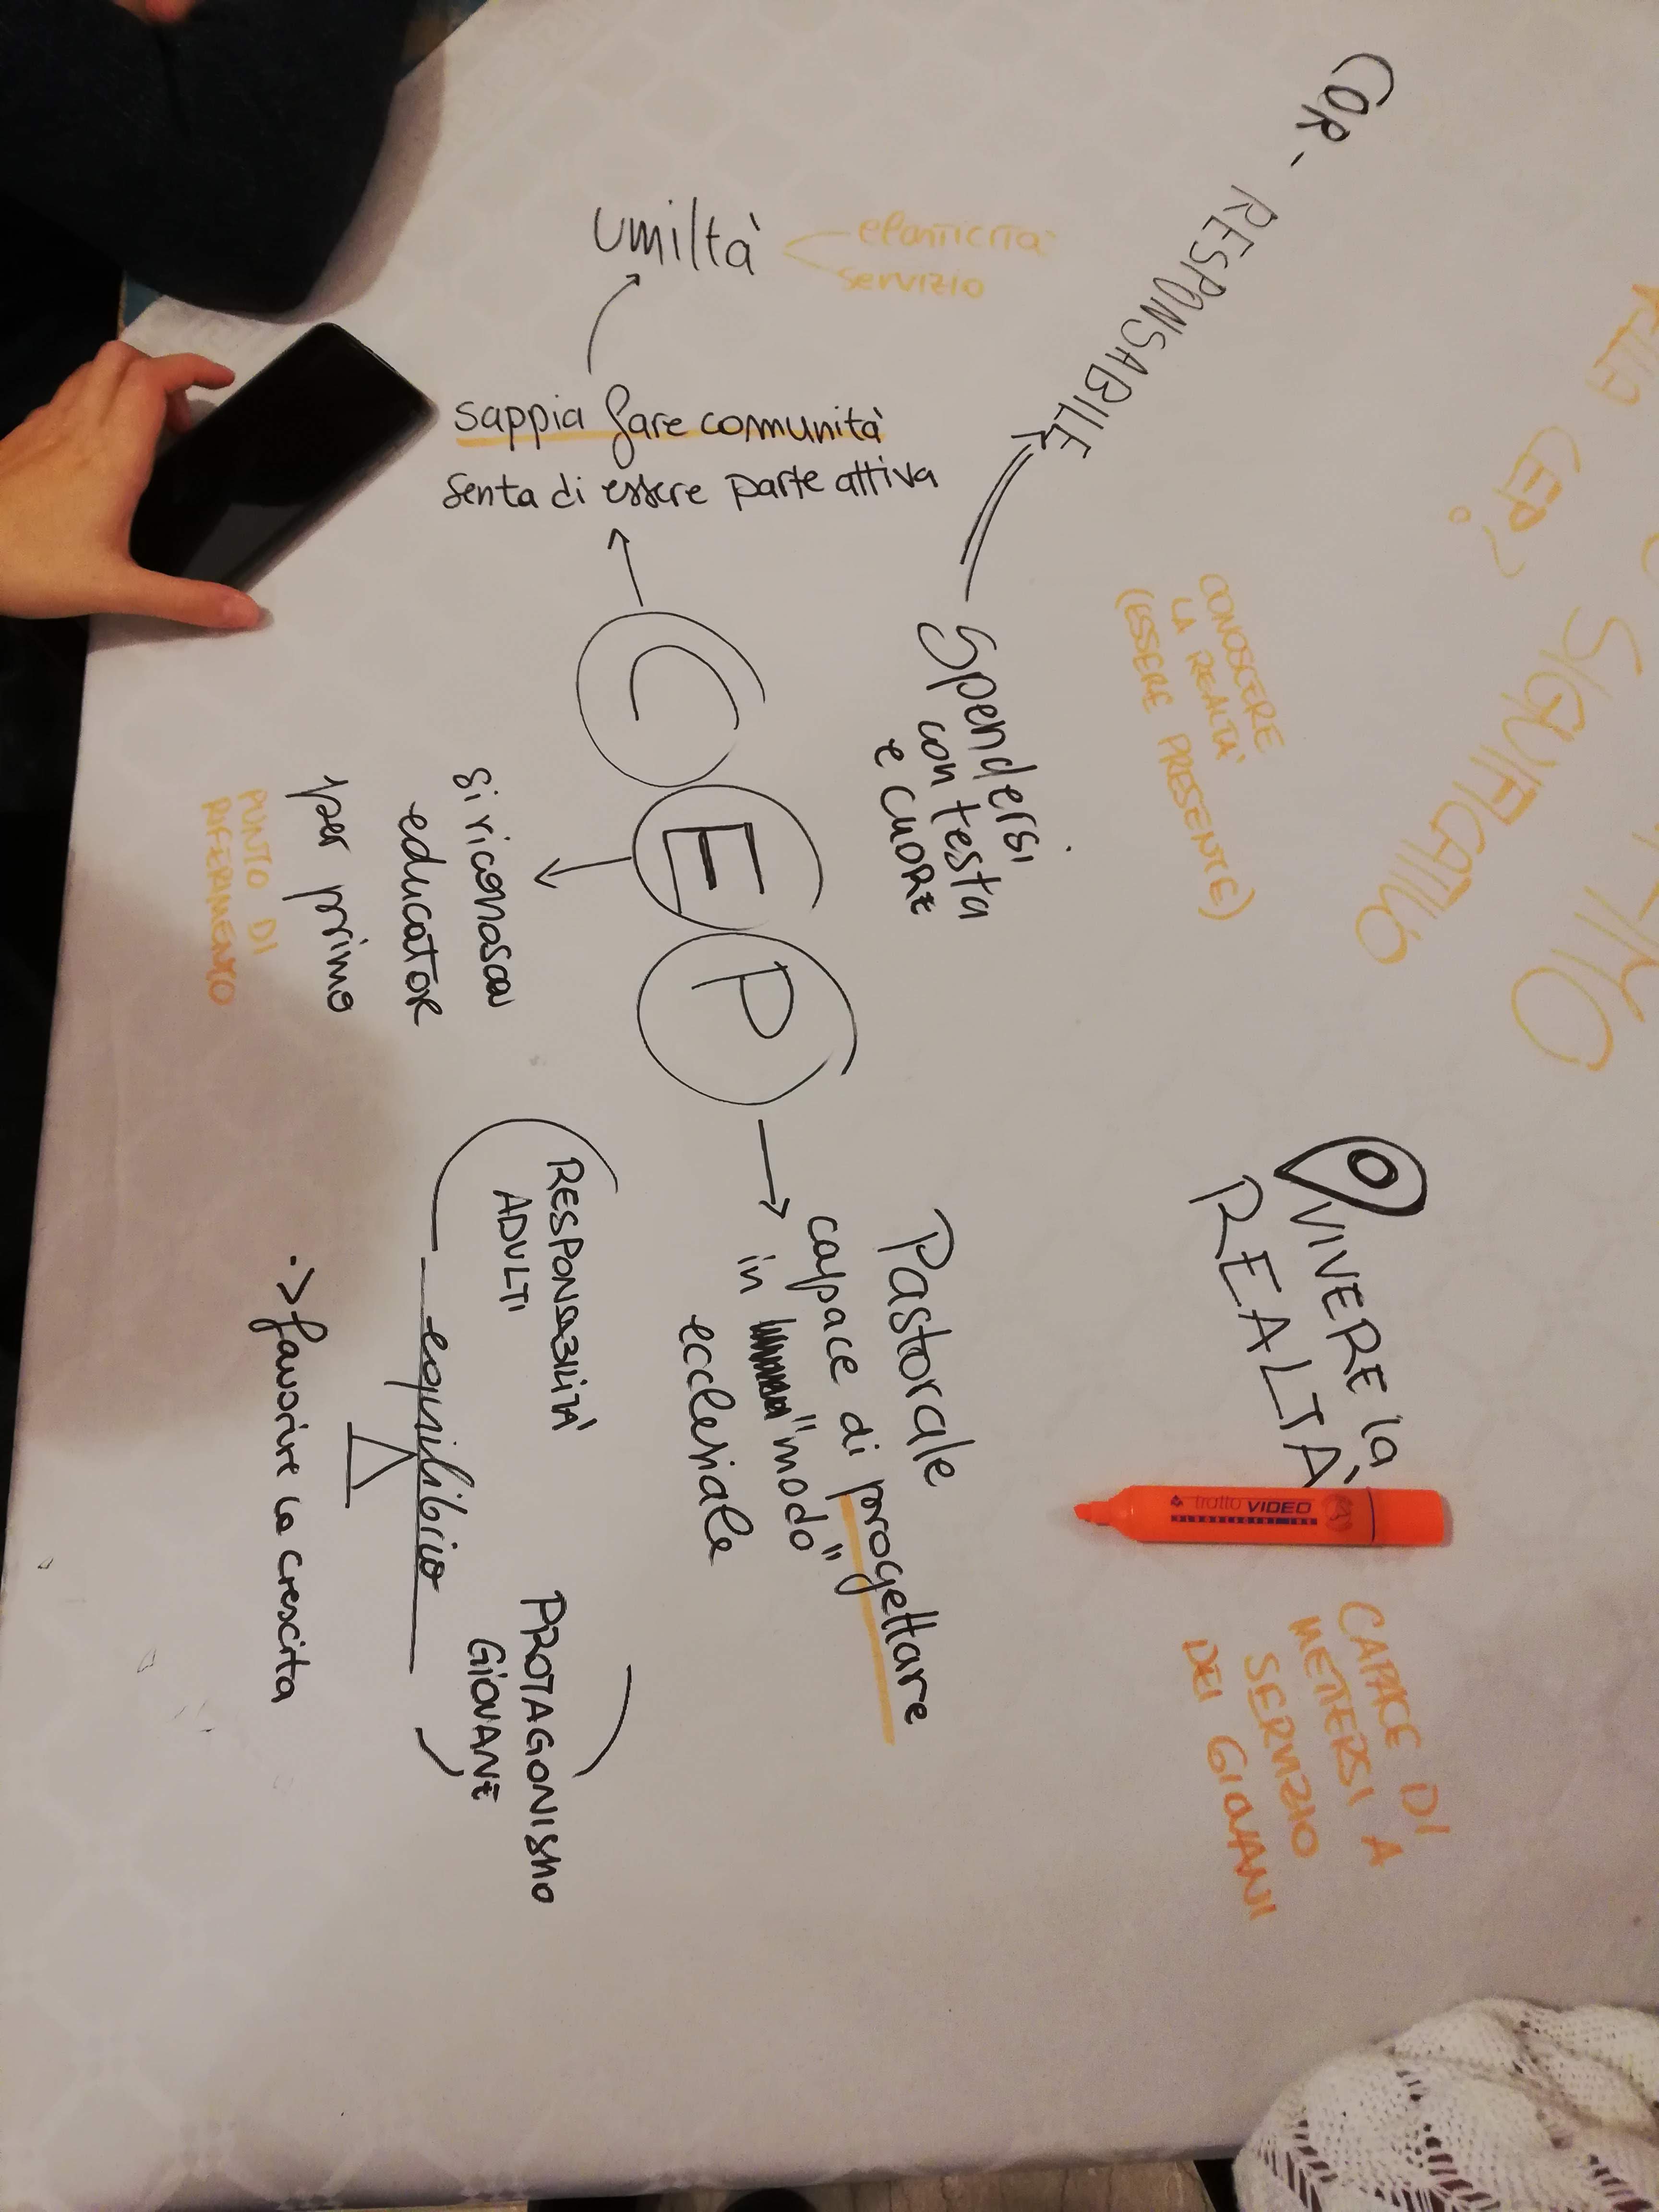 COR-RESPONSABILE
umiltà
elasticità
servizio
sappia fare comunità
senta di essere parte attiva
CEP?
SIGNIFICATIVO
CONOSCERE
LA REALTA'
(ESSERE PRESENTE)
Spendersi
con testa
e CUORE
C E P
si riconosca
educatore
per primo
PUNTO DI
RIFERIMENTO
VIVERE la
REALTÀ
tratto VIDEO
CAPACE DI
METTERSI A
SERVIZIO
DEI GIOVANI
Pastorale
capace di progettare
in "modo"
ecclesiale
RESPONSABILITA'
ADULTI
equilibrio
PROTAGONISMO
GIOVANE
-> favorire la crescita